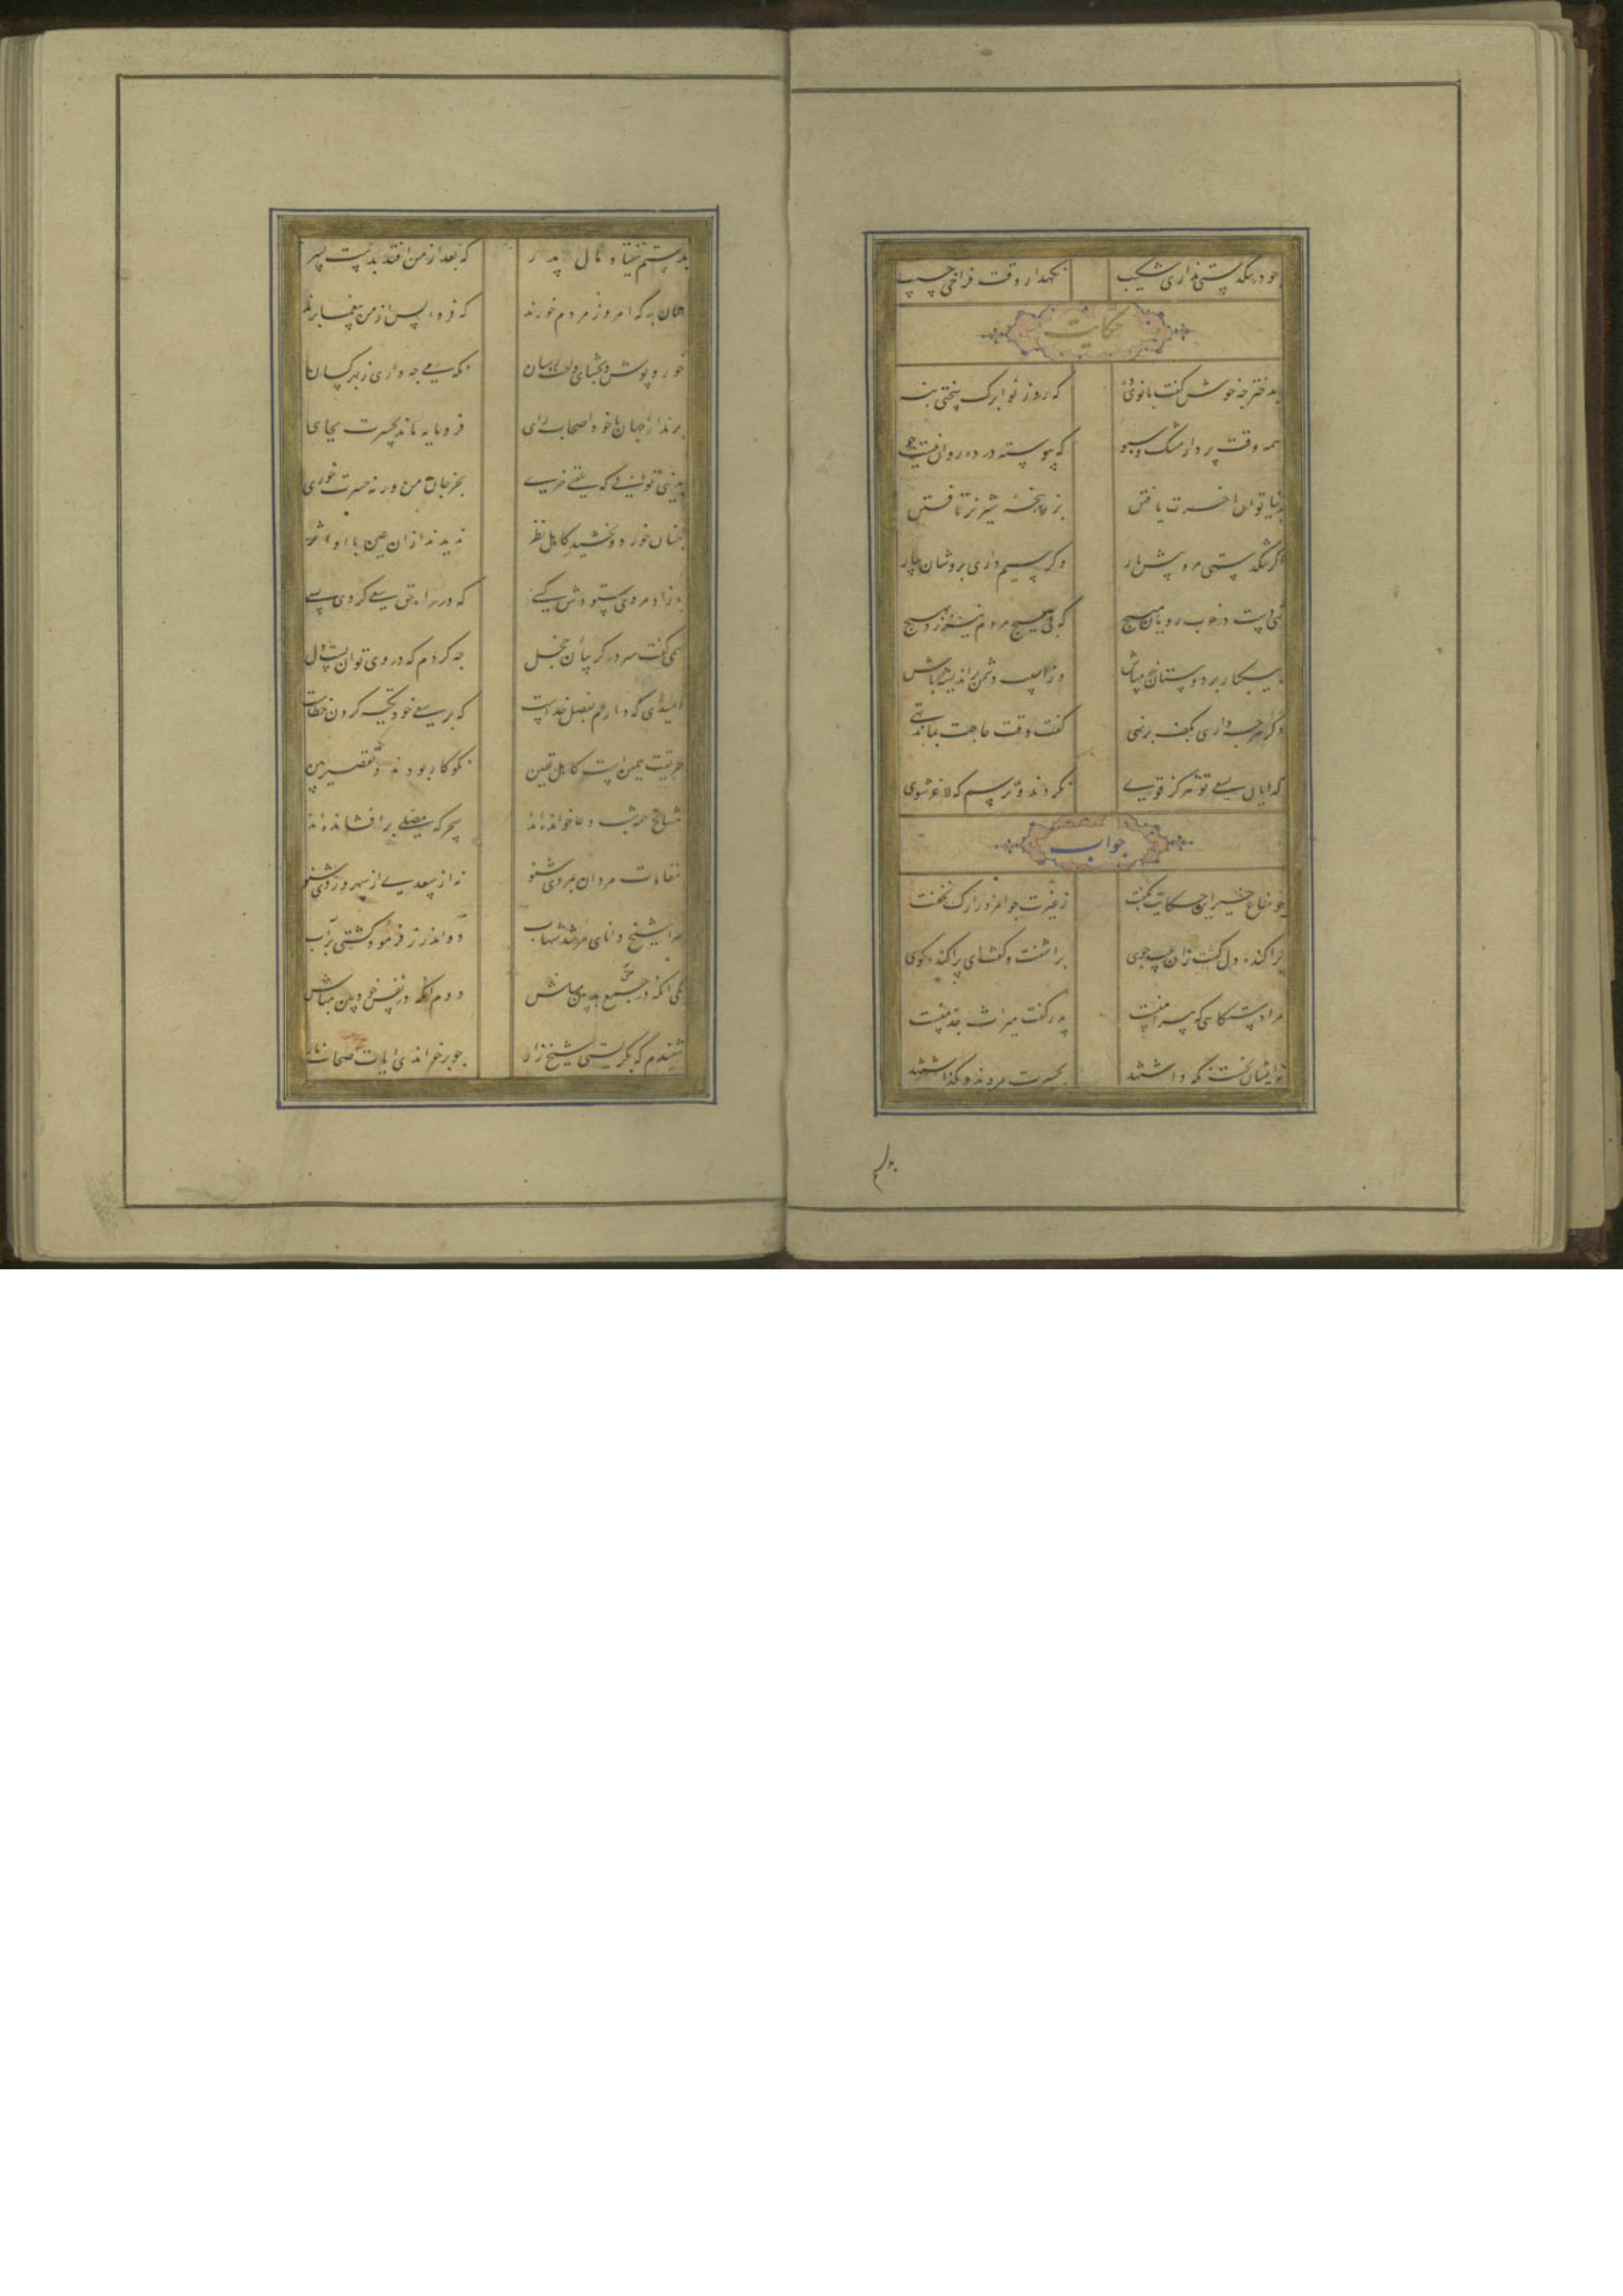 چو در تنگدستی نداری شکیب نگهدار وقت فراخی حسیب
حکایت
به دختر چه خوش گفت بانوی ده که روز نوا برگ سختی بنه
همه وقت پر دار مشک و سبو که پیوسته در ده روان نیست جو
به دنیا توان آخرت یافتن بزر پنجهٔ شیر نر تافتن
اگر تنگدستی مرو پیش یار وگر سیم داری برو شان بیار
تهی دست در خوب رویان مپیچ که بی هیچ مردم نیرزد بهیچ
وگر هرچه داری بکف برنهی کفت وقت حاجت بماند تهی
گدایان بسعی تو هرگز قوی نگردند و ترسم که لاغر شوی
جواب
چو مناع خیر این حکایت بگفت ز غیرت جوانمرد را رگ نخفت
پراکنده دل گشت زان عیب جوی براشفت و گفت ای پراکنده گوی
مرا دستگاهی که پیرامنست پدر گفت میراث جد منست
نه ایشان بخست نگه داشتند بحسرت مردند و بگذاشتند
بدستم نیفتاد مال پدر که بعد از من افتد بدست پسر
همان به که امروز مردم خورند که فردا پس از من بیغما برند
خور و پوش و بخشای و راحت رسان نگه می چه داری ز بهر کسان
برند از جهان با خود اصحاب رای فرومایه ماند بحسرت بجای
بدنیی توانی که عقبی خری بخر جان من ورنه حسرت خوری
چنان خورد و بخشید کاهل نظر ندیدند ازان عین با او اثر
بازاد مردی ستودش کسی که در راه حق سعی کردی بسی
همی گفت سر در گریبان خجل چه کردم که در وی توان بست دل
امیدی که دارم بفضل خداست که بر سعی خود تکیه کردن خطاست
طریقت همین است کاهل یقین نکوکار بودند و تقصیر بین
مشایخ همه شب دعا خوانده‌اند سحرگه مصلی برافشانده‌اند
مقامات مردان بمردی شنو نه از سعدی از سهروردی شنو
مرا شیخ دانای مرشد شهاب دو اندرز فرمود بر کشتی آب
یکی آنکه در جمع بدبین مباش دوم آنکه در نفس خودبین مباش
شنیدم که بگریستی شیخ زار چو برخواندی آیات اصحاب نار